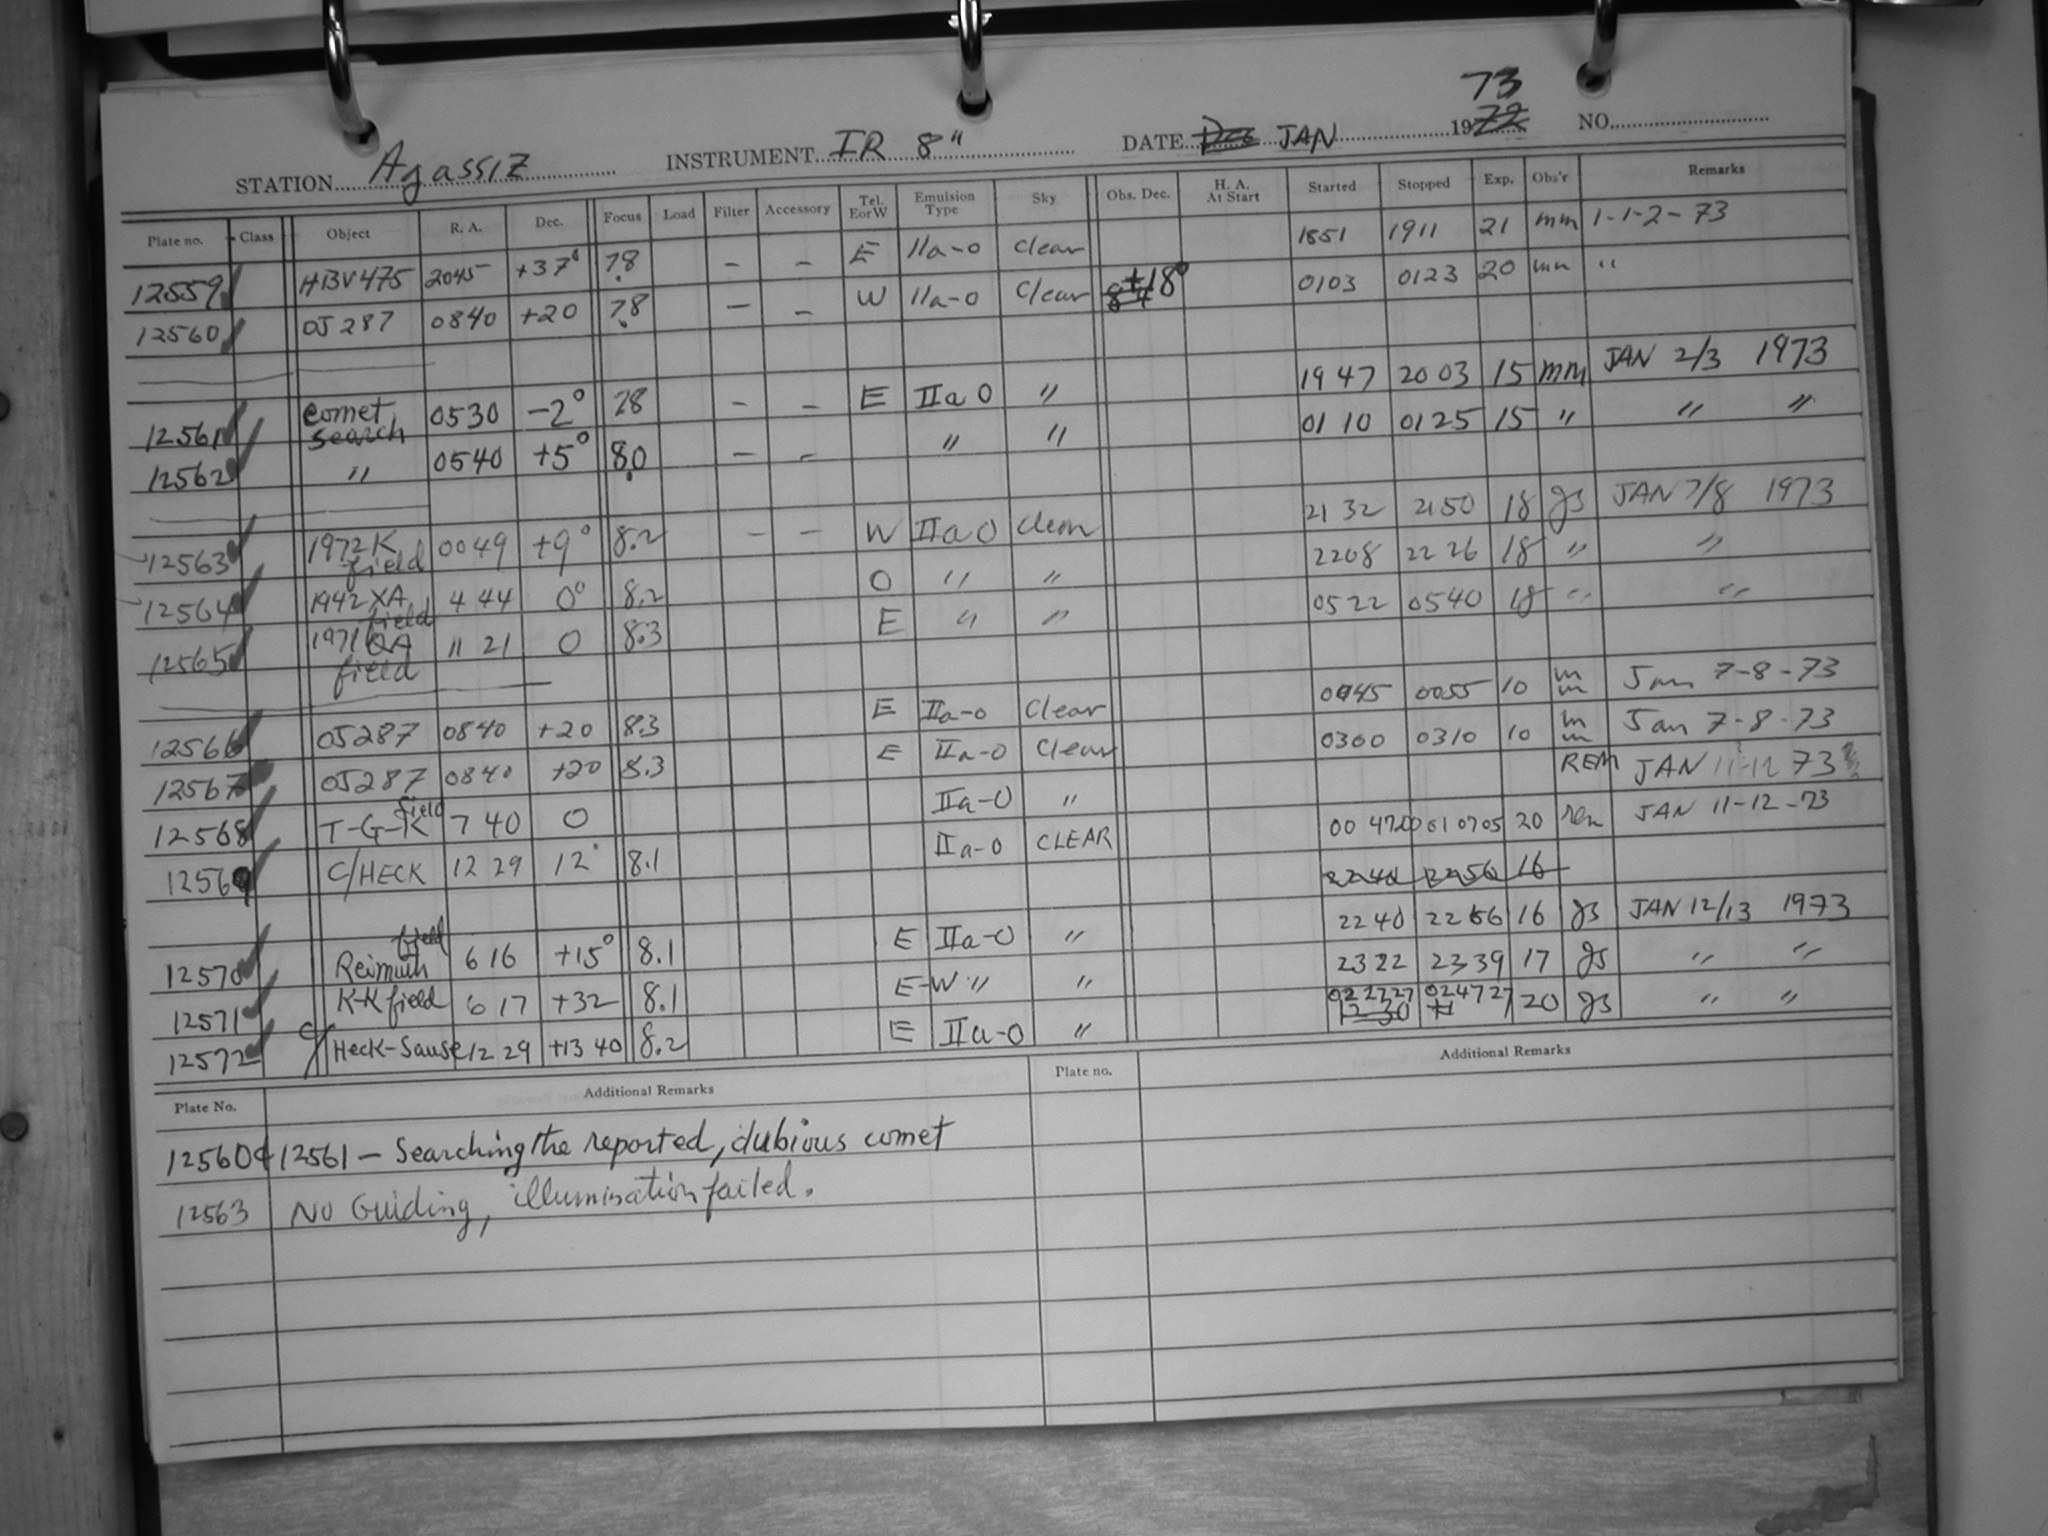 73
STATION Agassiz INSTRUMENT IR 8" DATE Dec JAN 1972 NO.
Plate no. Class Object R. A. Dec. Focus Load Filter Accessory Tel. EorW Emulsion Type Sky Obs. Dec. H. A. At Start Started Stopped Exp. Obs'r Remarks
12559 HBV475 2045 +37° 7.8 – – E IIa-O Clear 1851 1911 21 mm 1-1-2-73
12560 OJ 287 0840 +20 7.8 – – W IIa-O Clear +18° 0103 0123 20 mm "
12561 Comet search 0530 -2° 78 – – E IIa O " 1947 2003 15 mm JAN 2/3 1973
12562 " 0540 +5° 8.0 – – " " 0110 0125 15 " " "
12563 1972 K field 0049 +9° 8.2 – – W IIa O Clear 2132 2150 18 gs JAN 7/8 1973
12564 1942 XA field 4 44 0° 8.2 O " " 2208 2226 18 " "
12565 1971 QA field 11 21 0 8.3 E " " 0522 0540 18 " "
12566 OJ287 0840 +20 8.3 E IIa-O Clear 0045 0055 10 mm Jan 7-8-73
12567 OJ287 0840 +20 8.3 E IIa-O Clear 0300 0310 10 mm Jan 7-8-73
12568 T-G-K field 7 40 0 IIa-O " REM JAN 11-12 73
12569 C/HECK 12 29 12° 8.1 IIa-O CLEAR 00 4700 010705 20 rem JAN 11-12-73
2240 2256 16
12570 Reimuth field 6 16 +15° 8.1 E IIa-O " 2240 2256 16 gs JAN 12/13 1973
12571 K-K field 6 17 +32 8.1 E-W " " 2322 2339 17 gs " "
12572 C/Heck-Sause 12 29 +13 40 8.2 E IIa-O " 022727 024727 20 gs " "
1230
Plate No. Additional Remarks Plate no. Additional Remarks
12560 & 12561 – Searching the reported, dubious comet
12563 No Guiding, illumination failed.